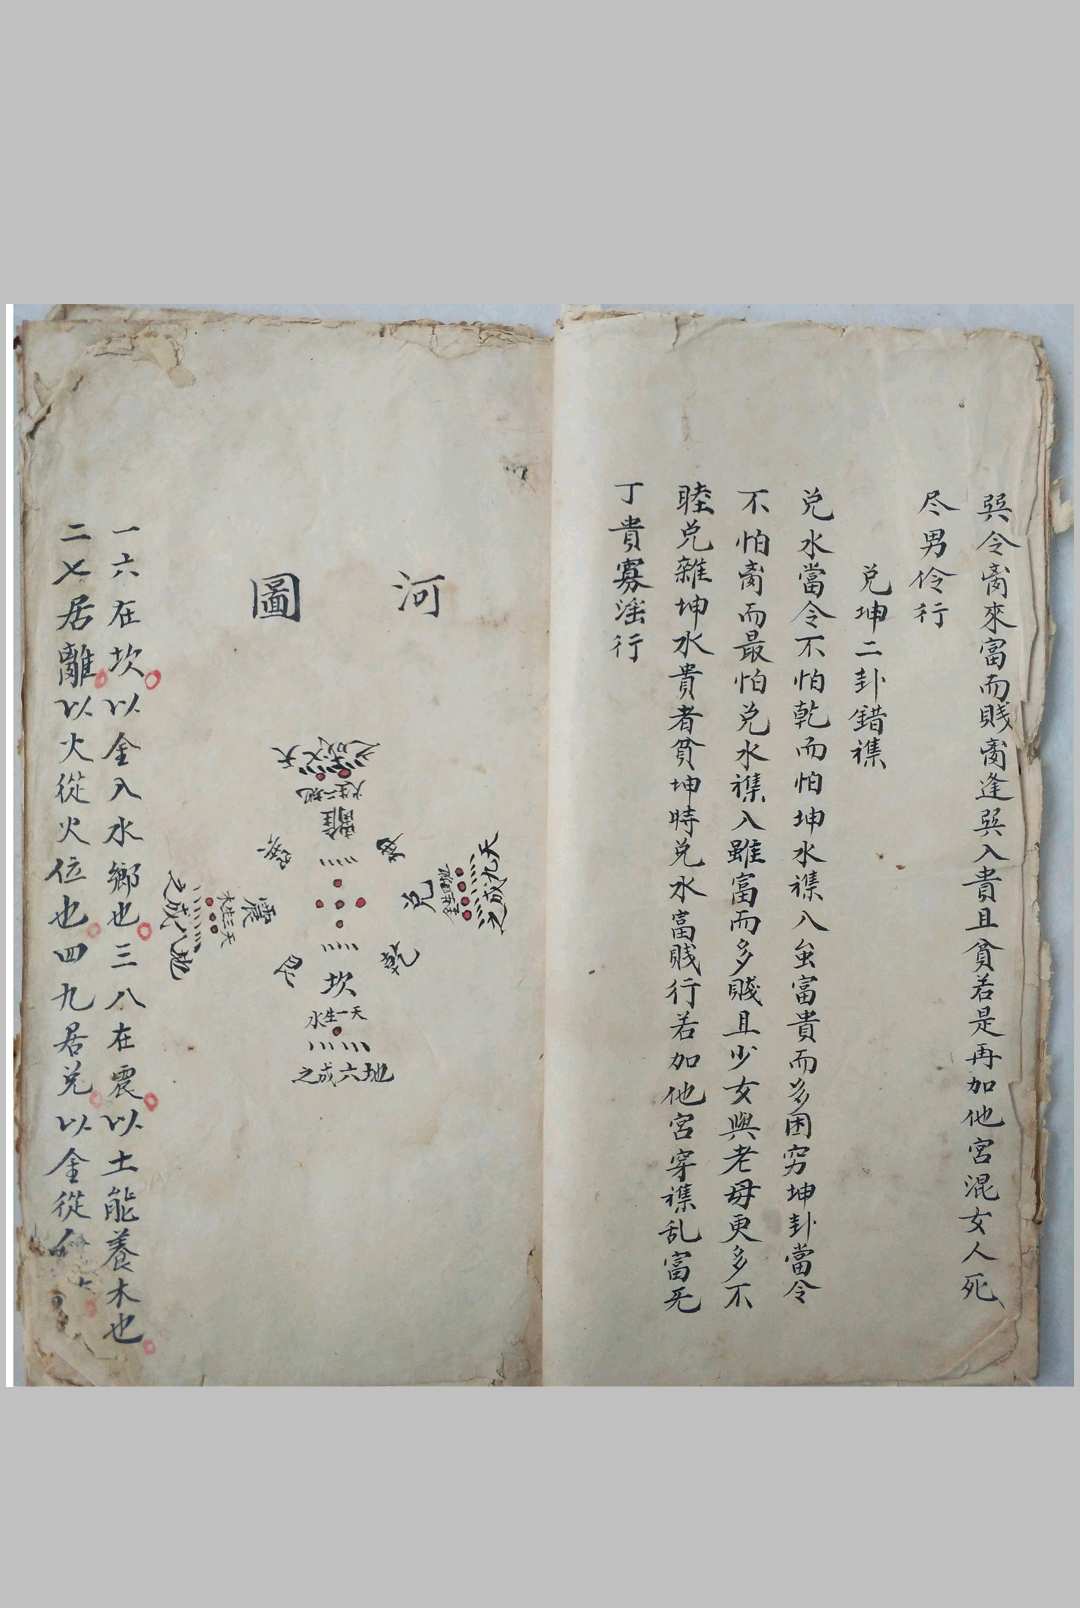 巽令离來富而賤离逢巽入貴且貧若是再加他宮混女人死
尽男伶行
兑坤二卦錯襍
兑水當令不怕乾而怕坤水襍入虽富貴而多困穷坤卦當令
不怕离而最怕兑水襍入雖富而多賤且少女與老母更多不
睦兑雜坤水貴者貧坤時兑水富賤行若加他宮穿襍乱富死
丁貴寡滛行
河圖
天七成之
地二生火
離
巽
坤
天三生木
地八成之
震
兑
天九成之
艮
乾
坎
天一生水
地六成之
一六在坎以金入水鄉也三八在震以土能養木也
二七居離以火從火位也四九居兑以金從